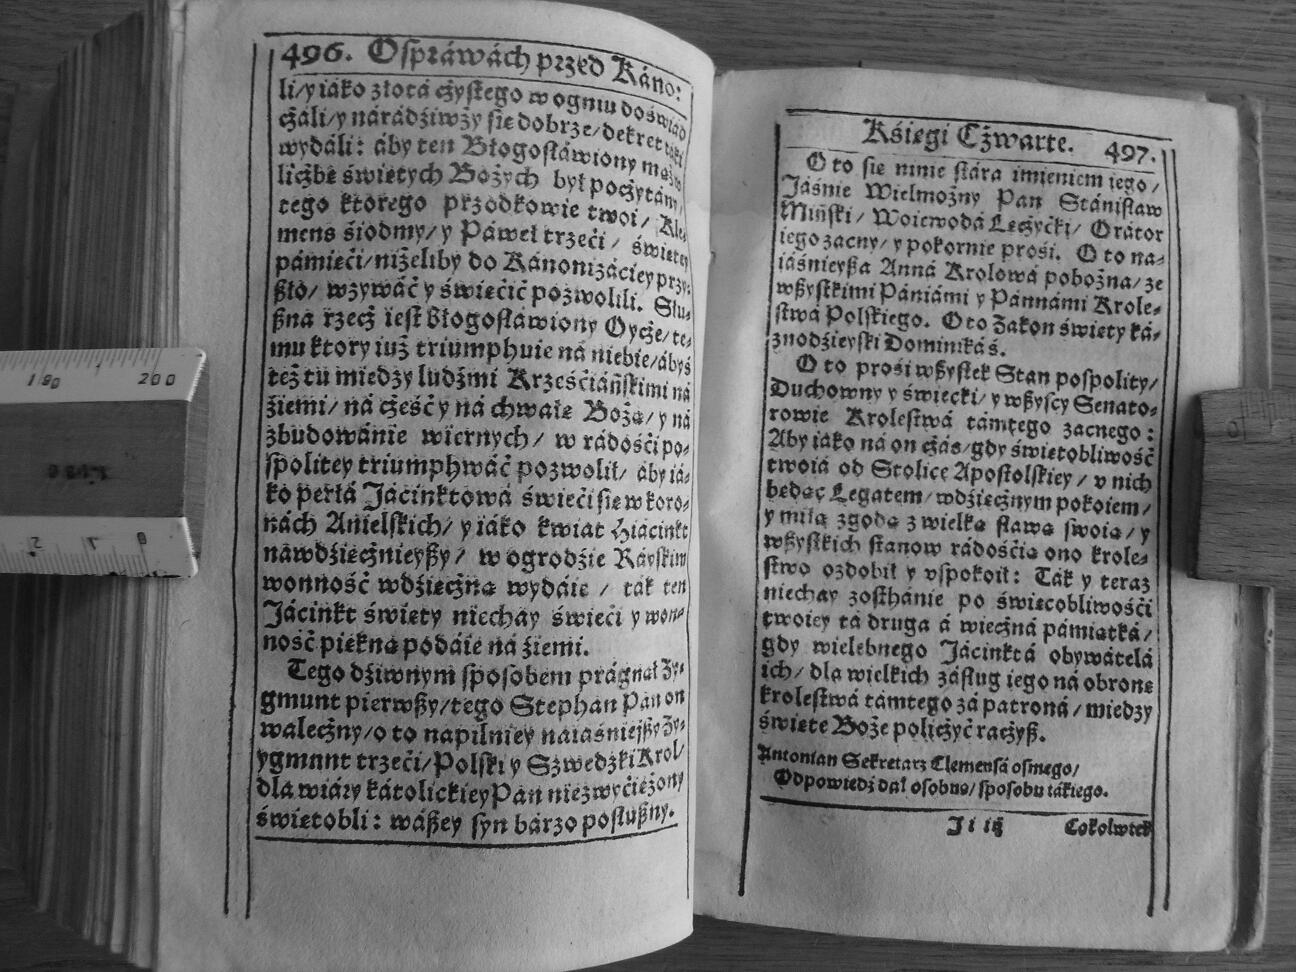 496. O spráwách przed Káno:
li/ y iáko złotá cżystego w ogniu doświád
cżáli/ y nárádźiwży sie dobrze/ dekret táki
wydáli: áby ten Błogosłáwiony miedzy
licżbe świetych Bożych był pocżytány/
tego ktorego przodkowie twoi/ Kle-
mens śiodmy/ y Páweł trzeći/ świetey
pámieći/ niżeliby do Kánonizáciey przy-
szło/ wzywáć y świećić pozwolili. Słu-
szna rzecż iest błogosłáwiony Oycże/ te-
mu ktory iuż triumphuie ná niebie/ ábyś
też tu miedzy ludźmi Krześćiáńskimi ná
źiemi/ ná cżeść y ná chwałe Bożą/ y ná
zbudowánie wiernych/ w rádośći po-
spolitey triumphwáć pozwolił/ áby iá-
ko perłá Jácinktowá świeći sie w koro-
nách Anielskich/ y iáko kwiat Hiácinkt
nawdźiecżnieyszy/ w ogrodźie Ráyskim
wonność wdźiecżną wydáie/ ták ten
Jácinkt świety niechay świeći y won-
ność piekną podáie ná źiemi.
Tego dźiwnym sposobem prágnął Zy-
gmunt pierwszy/ tego Stephan Pan on
walecżny/ o to napilniey naiaśnieyszy Zy-
ygmunt trzeći/ Polski y Szwedzki Krol/
dla wiáry kátolickiey Pan niezwyćieżony
świetobli: wászey syn bárzo posłuszny.
Kśiegi Cżwarte. 497.
O to sie mnie stára imieniem iego/
Jáśnie Wielmożny Pan Stánisław
Miński/ Woiewodá Lecżycki/ Orátor
iego zacny/ y pokornie prośi. O to na-
iáśnieysza Anná Krolowá pobożna/ ze
wszystkimi Pániámi y Pánnámi Krole-
stwá Polskiego. O to Zakon świety ká-
znodźieyski Dominiká ś.
O to prośi wszystek Stan pospolity/
Duchowny y świecki/ y wszyscy Senato-
rowie Krolestwá támtego zacnego:
Aby iáko ná on cżás/ gdy świetobliwość
twoiá od Stolice Apostolskiey/ v nich
bedąc Legatem/ wdźiecżnym pokoiem/
y miłą zgodą z wielką sławą swoią/ y
wszystkich stanow rádośćią ono krole-
stwo ozdobił y vspokoił: Ták y teraz
niechay zosthánie po świetobliwośći
twoiey tá druga á wiecżna pámiatká/
gdy wielebnego Jácinktá obywátelá
ich/ dla wielkich zásług iego ná obrone
krolestwá támtego zá patroná/ miedzy
świete Boże policżyć racżysz.
Antonian Sekretarz Clemensá osmego/
Odpowiedź dał osobną/ sposobu tákiego.
Ji iij Cokolwiek
190 200
2 1 0